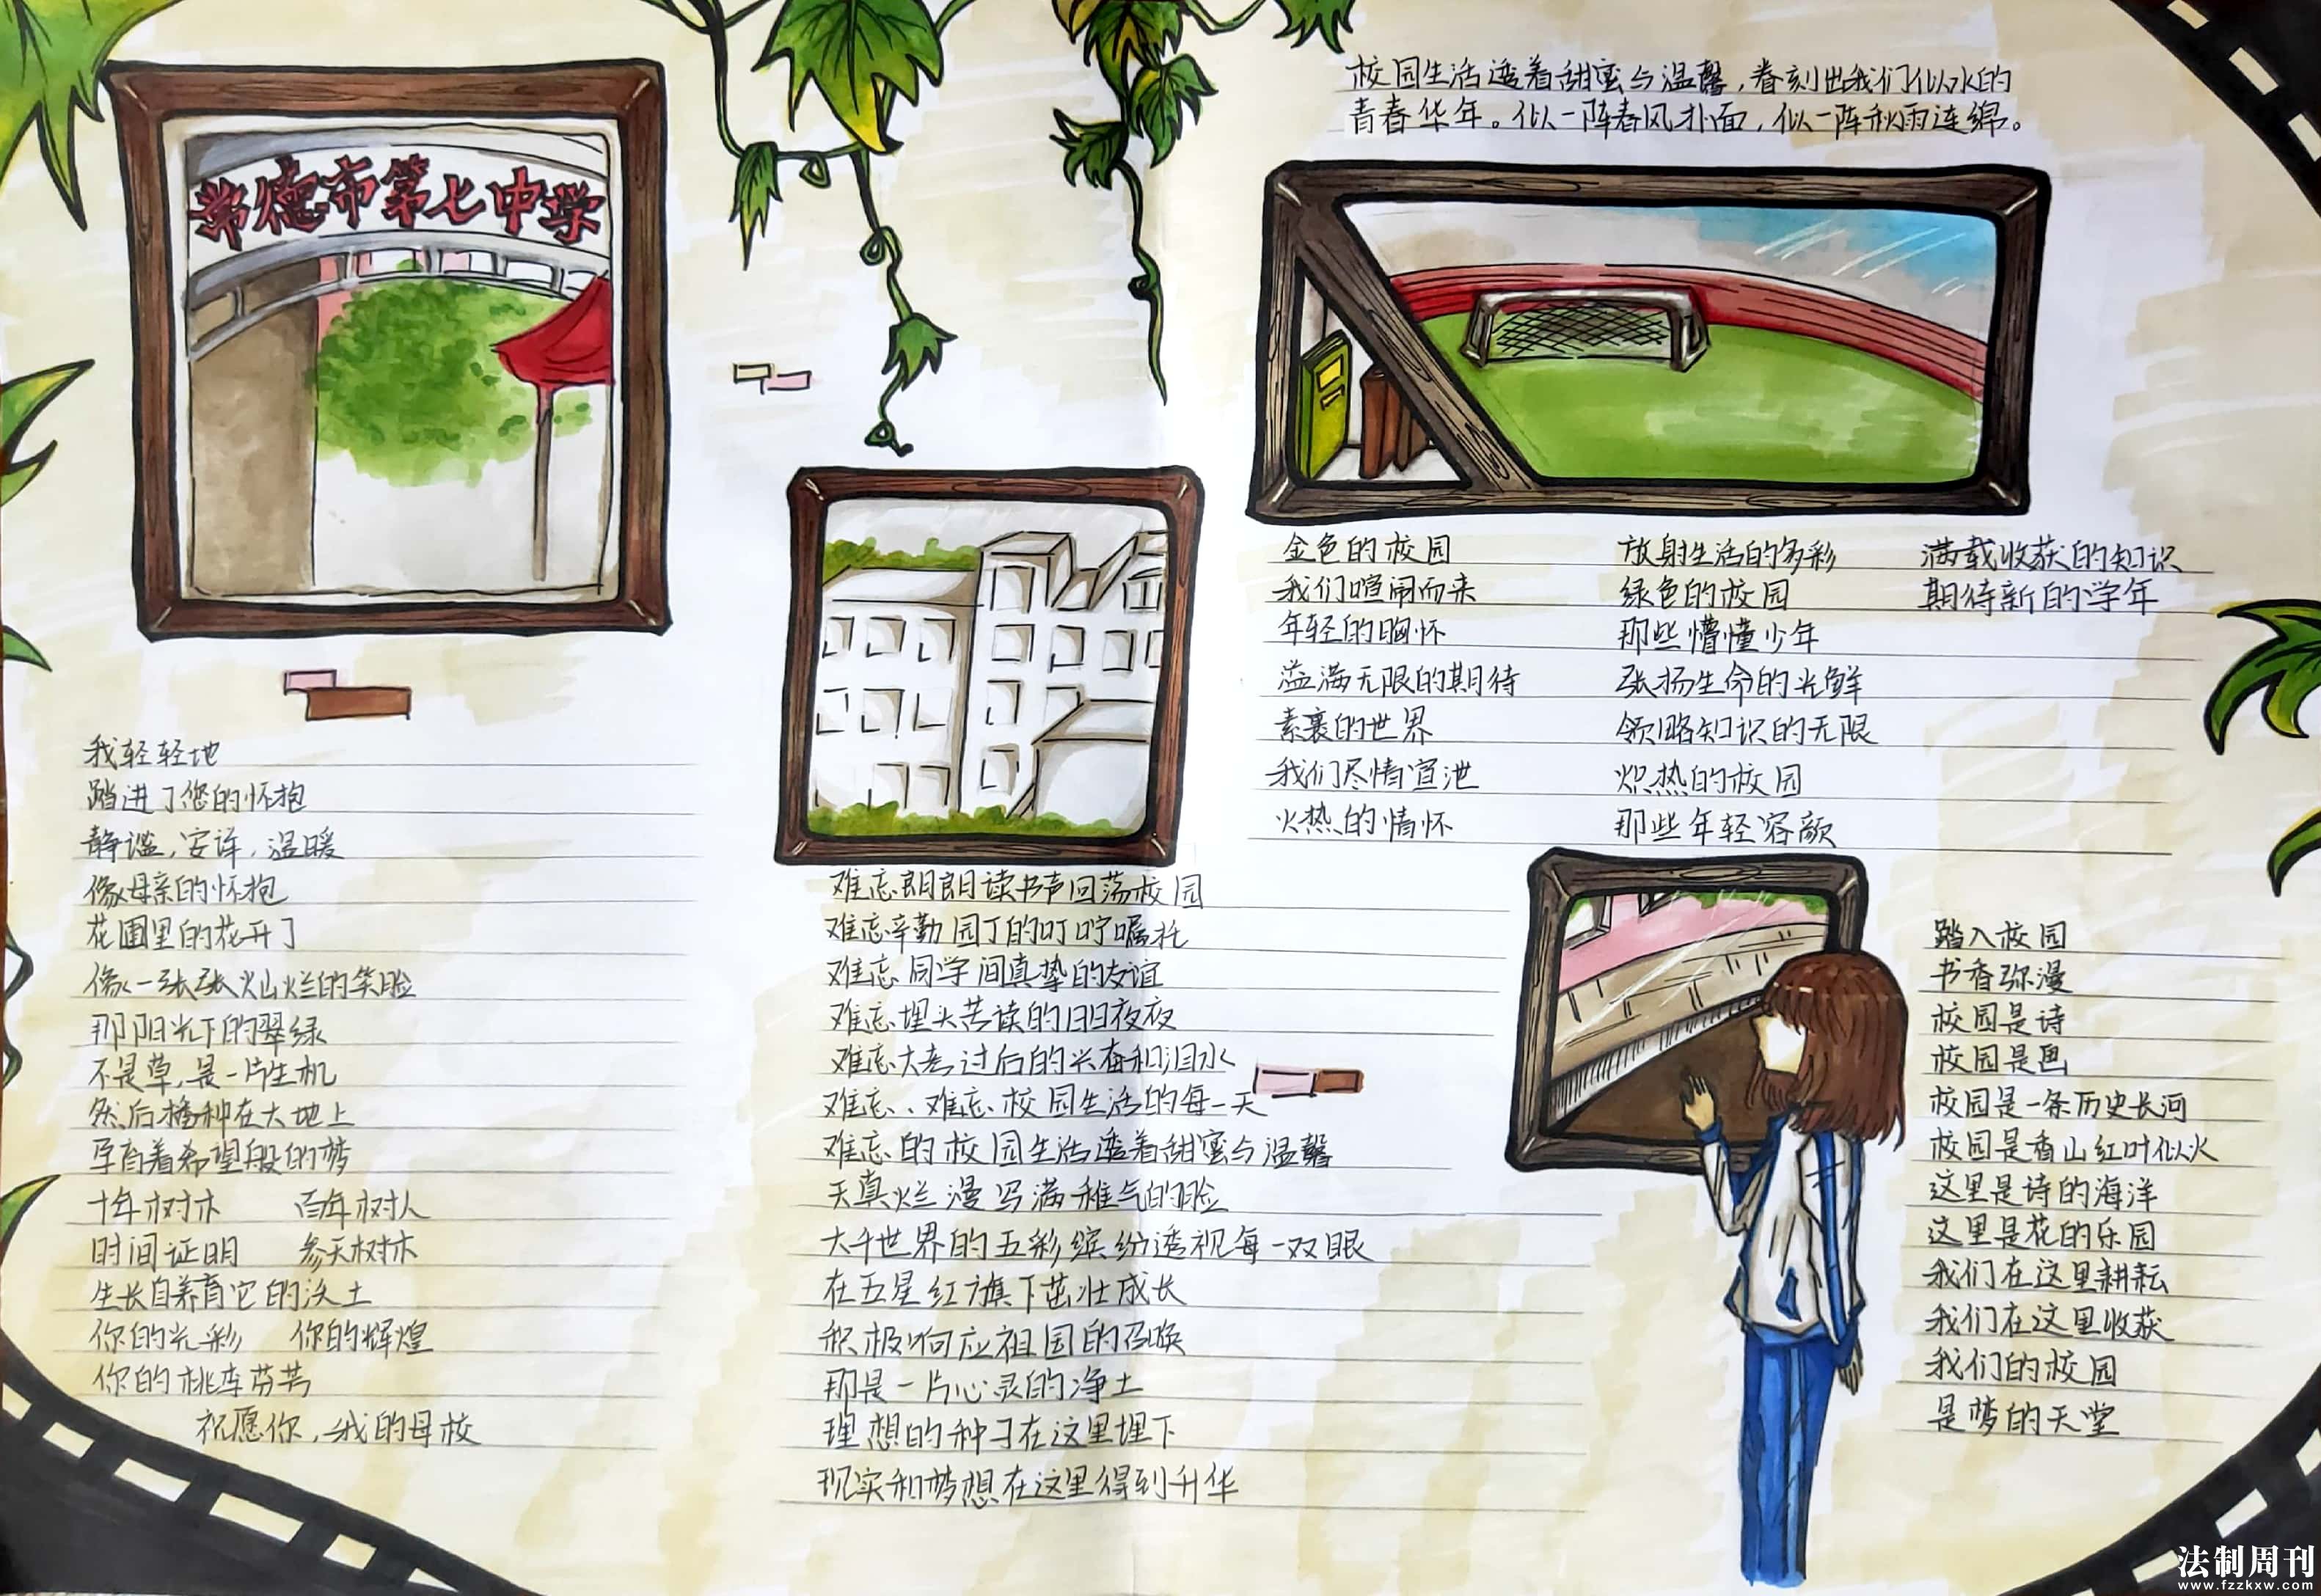 常德市第七中学
我轻轻地
踏进了您的怀抱
静谧,安详,温暖
像母亲的怀抱
花圃里的花开了
像一张张灿烂的笑脸
那阳光下的翠绿
不是草,是一片生机
然后播种在大地上
孕育着希望般的梦
十年树木 百年树人
时间证明 参天树木
生长自养育它的沃土
你的光彩 你的辉煌
你的桃李芬芳
祝愿你,我的母校
难忘朗朗读书声回荡校园
难忘辛勤园丁的叮咛嘱托
难忘同学间真挚的友谊
难忘埋头苦读的日日夜夜
难忘大考过后的兴奋和泪水
难忘、难忘校园生活的每一天
难忘的校园生活透着甜蜜与温馨
天真烂漫写满稚气的脸
大千世界的五彩缤纷透视每一双眼
在五星红旗下茁壮成长
积极响应祖国的召唤
那是一片心灵的净土
理想的种子在这里埋下
现实和梦想在这里得到升华
校园生活透着甜蜜与温馨,眷刻出我们似水的
青春华年。似一阵春风扑面,似一阵秋雨连绵。
金色的校园
我们喧闹而来
年轻的胸怀
溢满无限的期待
素裹的世界
我们尽情宣泄
火热的情怀
放射生活的多彩
绿色的校园
那些懵懂少年
张扬生命的光鲜
领略知识的无限
炽热的校园
那些年轻容颜
满载收获的知识
期待新的学年
踏入校园
书香弥漫
校园是诗
校园是画
校园是一条历史长河
校园是香山红叶似火
这里是诗的海洋
这里是花的乐园
我们在这里耕耘
我们在这里收获
我们的校园
是梦的天堂
法制周刊
www.fzzkxw.com